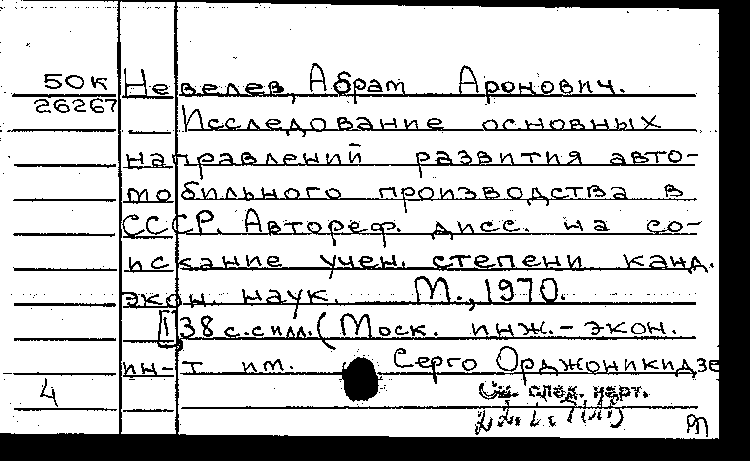 50к Невелев, Абрам Аронович.
26267 Исследование основных
направлений развития авто-
мобильного производства в
СССР. Автореф. дисс. на со-
искание учен. степени канд.
экон. наук. М., 1970.
38 с. с илл. (Моск. инж.-экон.
ин-т им. Серго Орджоникидзе
4 См. след. карт.